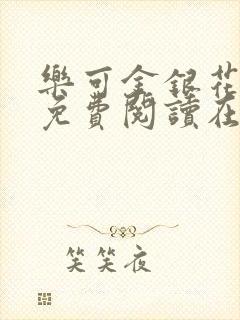 樂可金銀花
免費閱讀在
笑笑夜